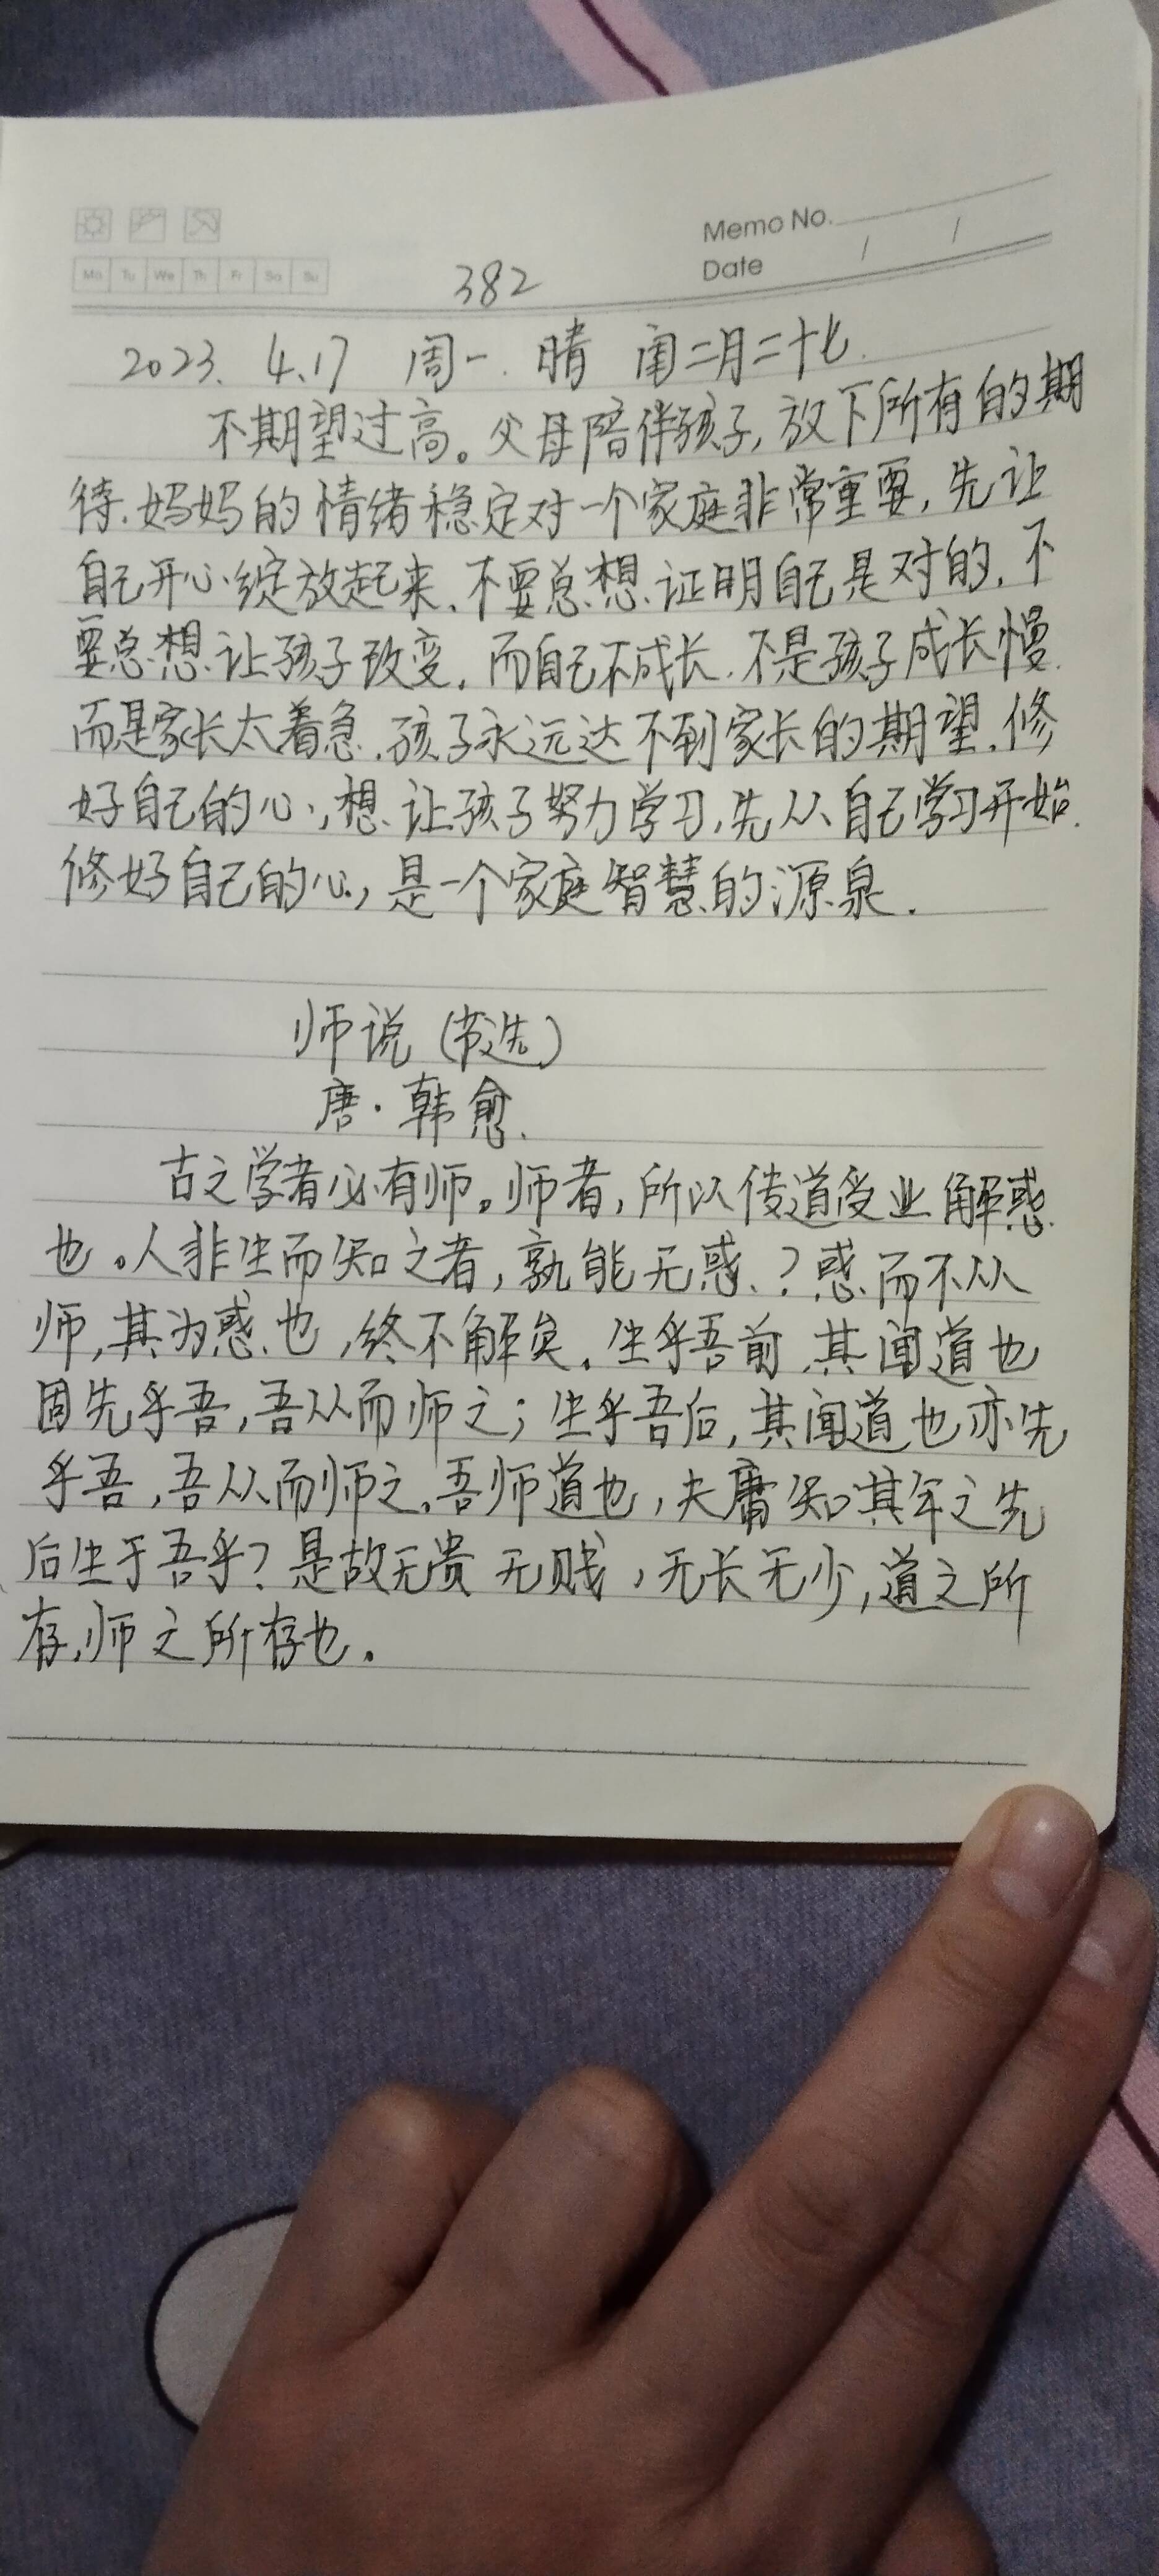 Memo No.
Mo Tu We Th Fr Sa Su
Date / /
382
2023. 4.17 周一. 晴 闰二月二十七.
不期望过高。父母陪伴孩子,放下所有的期
待.妈妈的情绪稳定对一个家庭非常重要,先让
自己开心绽放起来.不要总想证明自己是对的.不
要总想让孩子改变.而自己不成长.不是孩子成长慢.
而是家长太着急.孩子永远达不到家长的期望.修
好自己的心,想让孩子努力学习,先从自己学习开始.
修好自己的心,是一个家庭智慧的源泉.
师说(节选)
唐·韩愈.
古之学者必有师。师者,所以传道受业解惑
也。人非生而知之者,孰能无惑?惑而不从
师,其为惑也,终不解矣.生乎吾前.其闻道也
固先乎吾,吾从而师之;生乎吾后,其闻道也亦先
乎吾,吾从而师之.吾师道也,夫庸知其年之先
后生于吾乎?是故无贵无贱,无长无少,道之所
存,师之所存也.